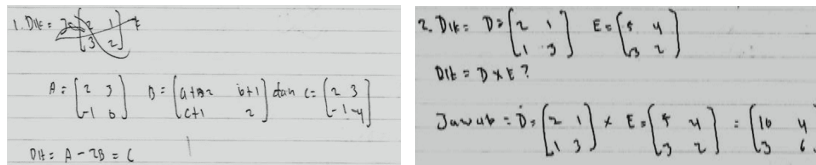 1. Dik =
A = [2 3
-1 6] B = [a+2 b+1
c+1 2] dan C = [2 3
-1 -4]
Dit = A - 2B = C
2. Dik = D = [2 1
1 3] E = [5 4
3 2]
Dit = D x E ?
Jawab = D = [2 1
1 3] x E = [5 4
3 2] = [10 4
3 6